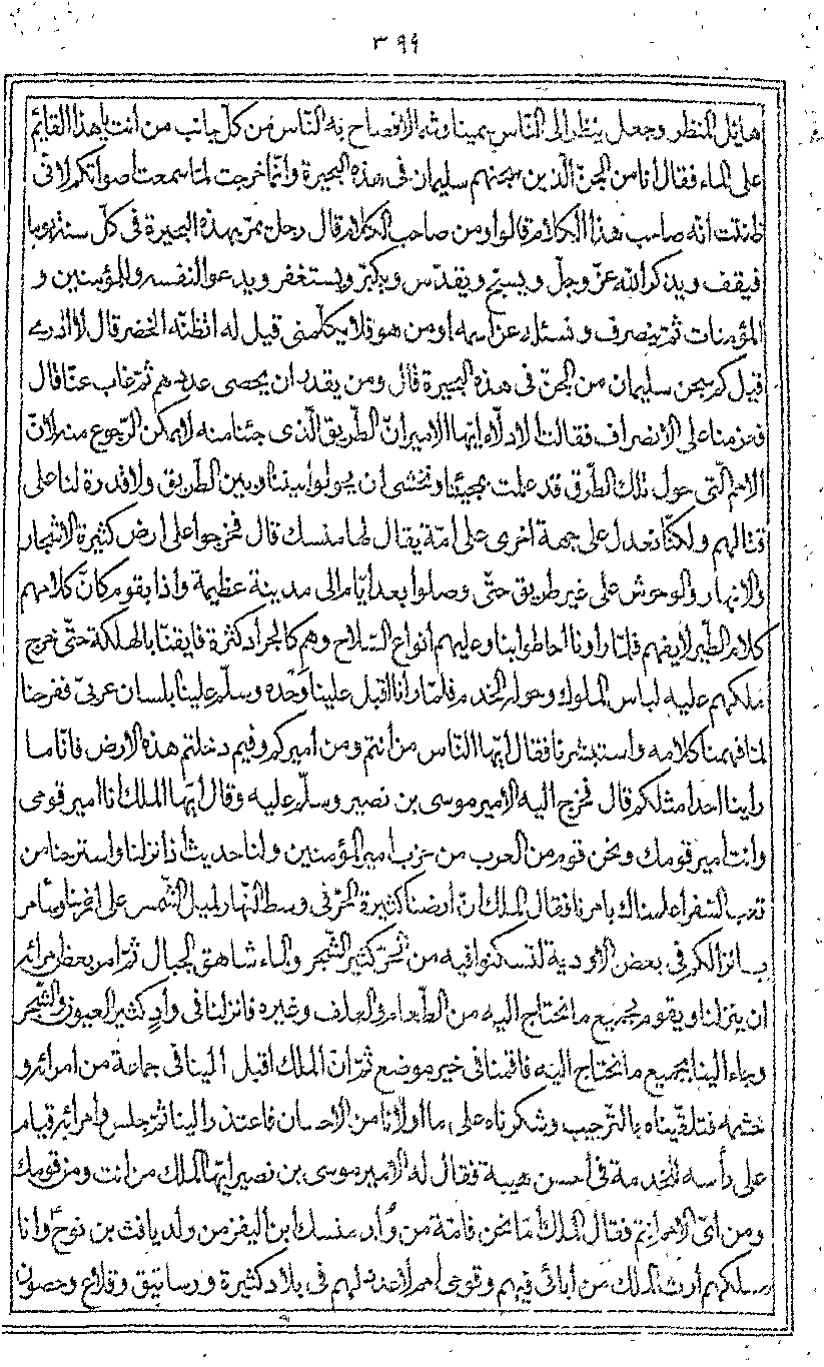 ٣٩٩
هائل المنظر وجعل ينظر الى الناس يمينا وشمالا فصاح به الناس من كلّ جانب من انت يا هذا القايم
على الماء فقال انا من الجنّ الّذين سجنهم سليمان فى هذه البحيرة وانّما خرجت لمّا سمعت اصواتكم لانّى
ظننت انّه صاحب هذا الكلام قالوا ومن صاحب الكلام قال رجل يمرّ بهذه البحيرة فى كلّ سنة يوما
فيقف ويذكر الله عزّ وجلّ ويسبّح ويقدّس ويكبّر ويستغفر ويدعو لنفسه وللمؤمنين و
المؤمنات ثمّ ينصرف ونسئله عن اسمه او من هو فلا يكلّمنى قيل له اتظنّه الخضر قال لا ادرى
قيل كم سجن سليمان من الجنّ فى هذه البحيرة قال ومن يقدر ان يحصى عددهم ثمّ غاب عنّا قال
فعزمنا على الانصراف فقالت الادلّاء ايّها الامير انّ الطّريق الّذى جئنا منه لا يمكن الرّجوع منه لانّ
الامم الّتى حول تلك الطّرق قد علمت بمجيئنا ونخشى ان يحولوا بيننا وبين الطّريق ولا قدرة لنا على
قتالهم ولكنّا نعدل على جهة اخرى على امّة يقال لها منسك قال فخرجوا على ارض كثيرة الاشجار
والانهار والوحوش على غير طريق حتّى وصلوا بعد ايّام الى مدينة عظيمة واذا بقوم كانّ كلامهم
كلام الطّير لا يفهم فلمّا راونا احاطوا بنا وعليهم انواع السّلاح وهم كالجراد كثرة فايقنّا بالهلكة حتّى خرج
ملكهم عليه لباس الملوك وحوله الخدم فلمّا رانا اقبل علينا وحده وسلّم علينا بلسان عربىّ ففرحنا
لمّا فهمنا كلامه واستبشرنا فقال ايّها النّاس من انتم ومن اميركم وفيم دخلتم هذه الارض فانّا ما
راينا احدا مثلكم قال فخرج اليه الامير موسى بن نصير وسلّم عليه وقال ايّها الملك انا امير قومى
وانت امير قومك ونحن قوم من العرب من حزب امير المؤمنين ولنا حديث اذا نزلنا واسترحنا من
تعب السّفر اعلمناك بامرنا فقال الملك انّ ارضنا كثيرة الحرّ فى وسط النّهار لميل الشّمس على ارضنا وسامر
بانزالكم فى بعض الاودية لتسكنوا فيه من الحرّ كثير الشّجر والماء شاهق الجبال ثمّ امر بعض امرائه
ان ينزلنا ويقوم بجميع ما نحتاج اليه من الطّعام والعلف وغيره فانزلنا فى وادٍ كثير العيون والشّجر
وجاء الينا بجميع ما نحتاج اليه فاقمنا فى خير موضع ثمّ انّ الملك اقبل الينا فى جماعة من امرائه و
حشمه فتلقّيناه بالتّرحيب وشكرناه على ما اولانا من الاحسان فاعتذر الينا ثمّ جلس وامرائه قيام
على رأسه للخدمة فى أحسن هيبة فقال له الامير موسى بن نصير ايّها الملك من انت ومن قومك
ومن اىّ الامم انتم فقال الملك امّا نحن فامّة من ولد منسك ابن اليفز من ولد يافث بن نوح وانا
ملكهم أرث الملك من ابائى فيهم وقومى امم لا عدد لهم فى بلاد كثيرة ورساتيق وقلاع وحصون